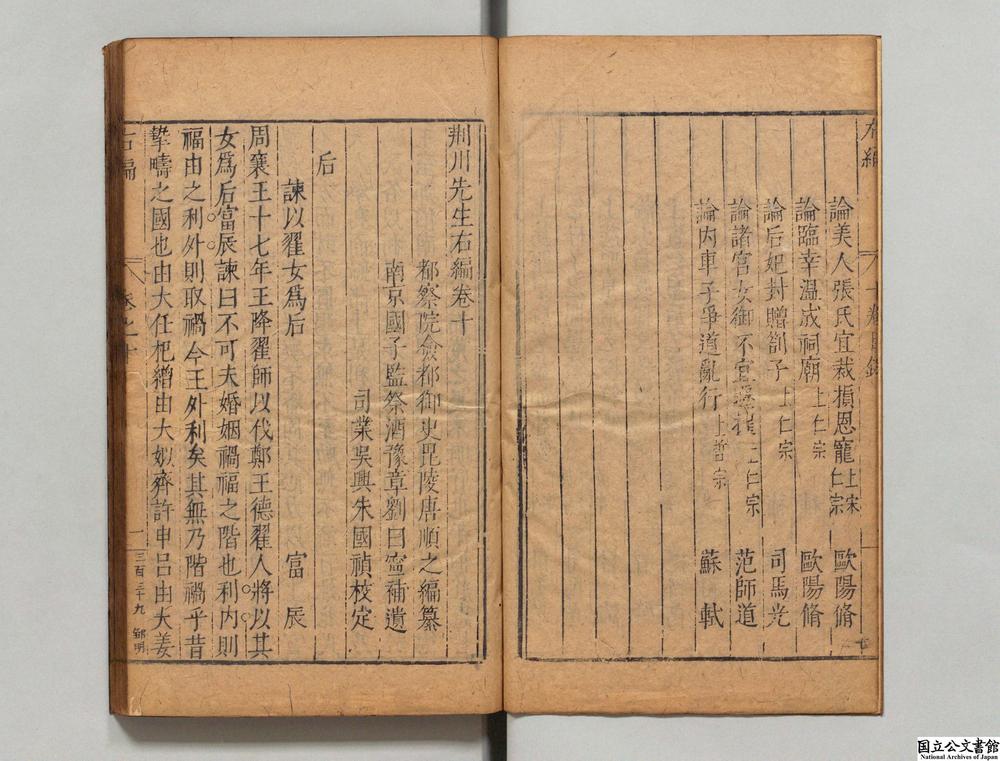 右編
十卷目錄
論美人張氏宜裁損恩寵 上宋仁宗 歐陽脩
論臨幸溫成祠廟 上仁宗 歐陽脩
論后妃封贈劄子 上仁宗 司馬光
論諸宮女御不宜 上仁宗 范師道
論內車子爭道亂行 上哲宗 蘇軾
荆川先生右編卷十
都察院僉都御史毘陵唐順之編纂
南京國子監祭酒豫章劉曰寧補遺
司業吳興朱國禎校定
后
諫以翟女爲后 富辰
周襄王十七年王降翟師以伐鄭王德翟人將以其
女爲后富辰諫曰不可夫婚姻禍福之階也利內則
福由之利外則取禍今王外利矣其無乃階禍乎昔
摯疇之國也由大任杞繒由大姒齊許申呂由大姜
右編
卷之十
一
三百三十九
鄒明
国立公文書館
National Archives of Japan